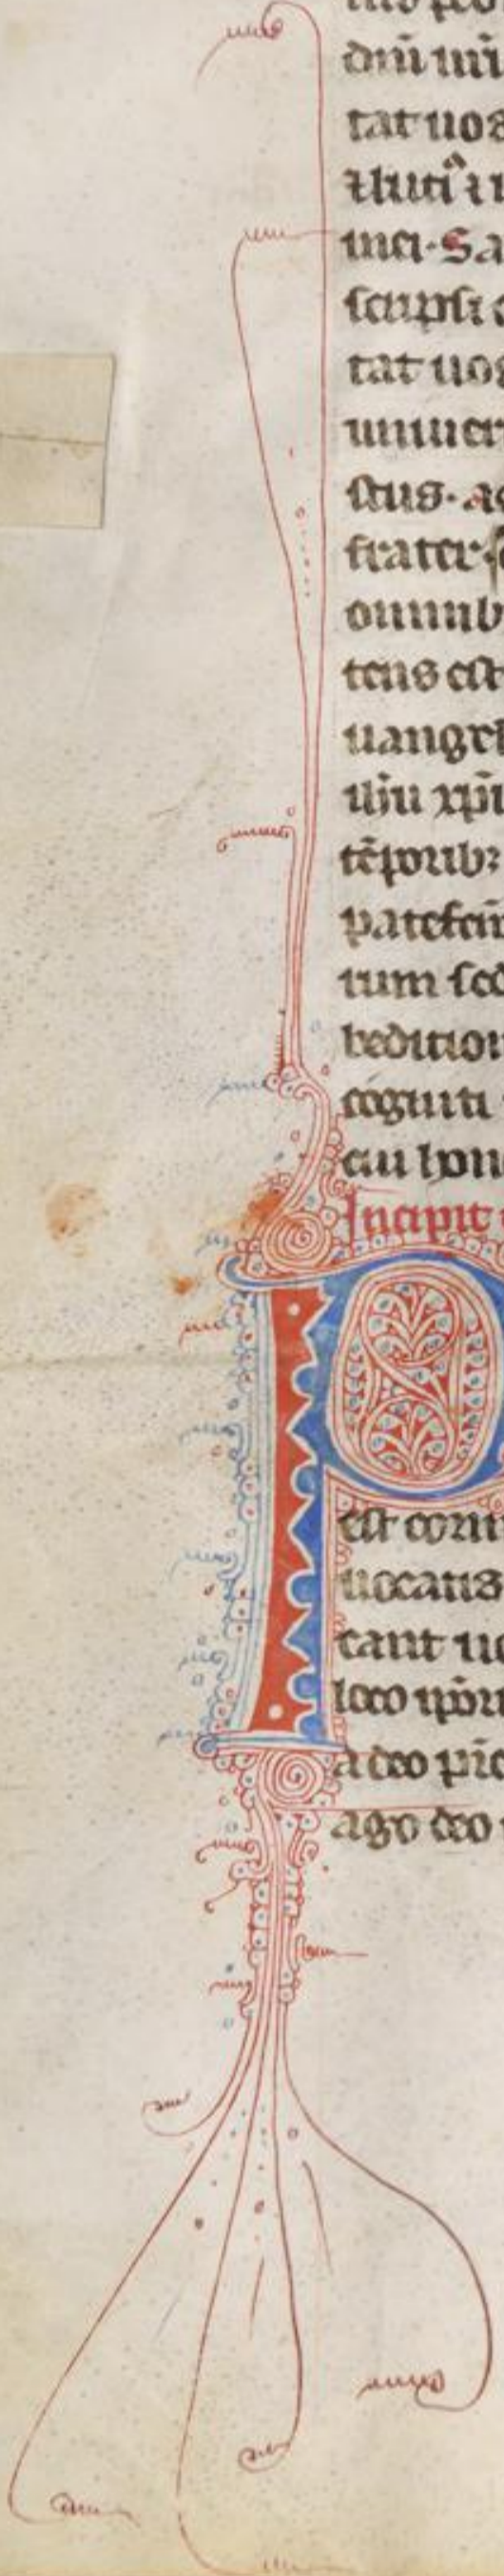 dm̄ ur̄i
tat uos
mei. Sa
scripsi e
tat uos
uniuer
stus. ac
frater
omnib
tens est
uangel
ih̄u xp̄i
tēporibꝫ
patefcā
rum sed
bedition
cogniti
cui hono
Incipit
P
est corin
uocatis
cant uo
loco ip̄or
a deo pr̄e
ago deo